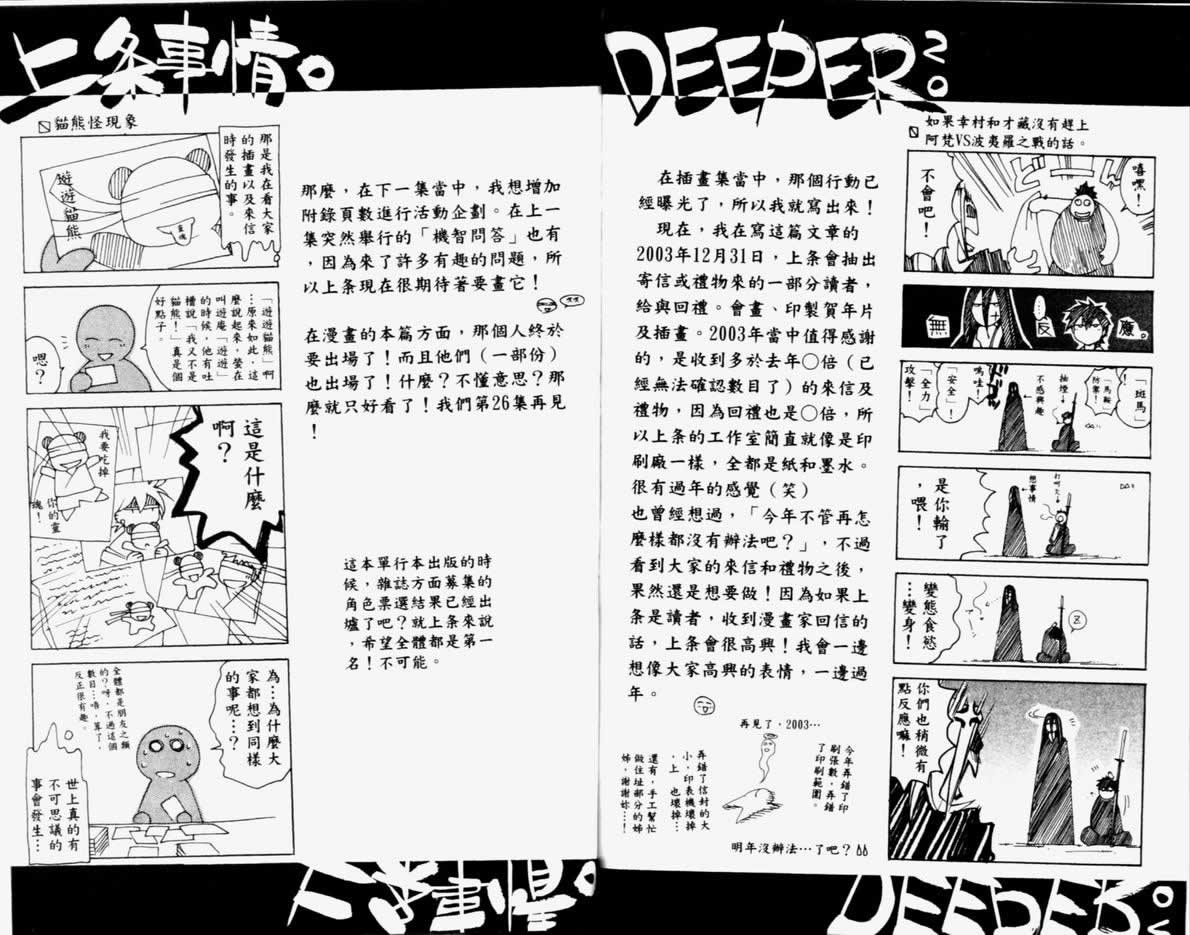 DEEPER 20
如果幸村和才藏沒有趕上
阿梵VS波夷羅之戰的話。
嘻嘿！
不會吧！
無…反應。
「斑馬」！
「馬鞍」
防禦！
嗚哇！
「安全」！
「全力」
攻擊！
抽煙→
不感興趣
打呵欠→
想事情
是你輸了
，喂！
變態食慾
…變身！
Z
你們也稍微有
點反應嘛！
在插畫集當中，那個行動已
經曝光了，所以我就寫出來！
現在，我在寫這篇文章的
2003年12月31日，上条會抽出
寄信或禮物來的一部分讀者，
給與回禮。會畫、印製賀年片
及插畫。2003年當中值得感謝
的，是收到多於去年○倍（已
經無法確認數目了）的來信及
禮物，因為回禮也是○倍，所
以上条的工作室簡直就像是印
刷廠一樣，全都是紙和墨水。
很有過年的感覺（笑）
也曾經想過，「今年不管再怎
麼樣都沒有辦法吧？」，不過
看到大家的來信和禮物之後，
果然還是想要做！因為如果上
条是讀者，收到漫畫家回信的
話，上条會很高興！我會一邊
想像大家高興的表情，一邊過
年。
再見了，2003…
今年弄錯了印
刷張數，弄錯
了印刷範圍。
弄錯了信封的大
小，印表機壞掉
，上 也壞掉…
還有，手工幫忙
做住址部分的姊
姊，謝謝妳…！
明年沒辦法…了吧？66
上条事情。
那麼，在下一集當中，我想增加
附錄頁數進行活動企劃。在上一
集突然舉行的「機智問答」也有
，因為來了許多有趣的問題，所
以上条現在很期待著要畫它！
在漫畫的本篇方面，那個人終於
要出場了！而且他們（一部份）
也出場了！什麼？不懂意思？那
麼就只好看了！我們第26集再見
！
這本單行本出版的時
候，雜誌方面募集的
角色票選結果已經出
爐了吧？就上条來說
，希望全體都是第一
名！不可能。
貓熊怪現象
那是我在看大家
的插畫以及來信
時發生的事。
遊遊貓熊
靈魂
「遊遊貓熊」啊
…原來如此，這
麼說起來，螢在
叫遊庵「遊遊」
的時候，他有吐
槽說「我又不是
貓熊！」真是個
好點子。
嗯？
這是什麼
啊？
我要吃掉
你的靈
魂！
為…為什麼大
家都想到同樣
的事呢…？
全體都是朋友之類
的？呀，不過這個
數目…唔，算了，
反正很有趣。
世上真的有
不可思議的
事會發生…
上条事情。
DEEPER 20